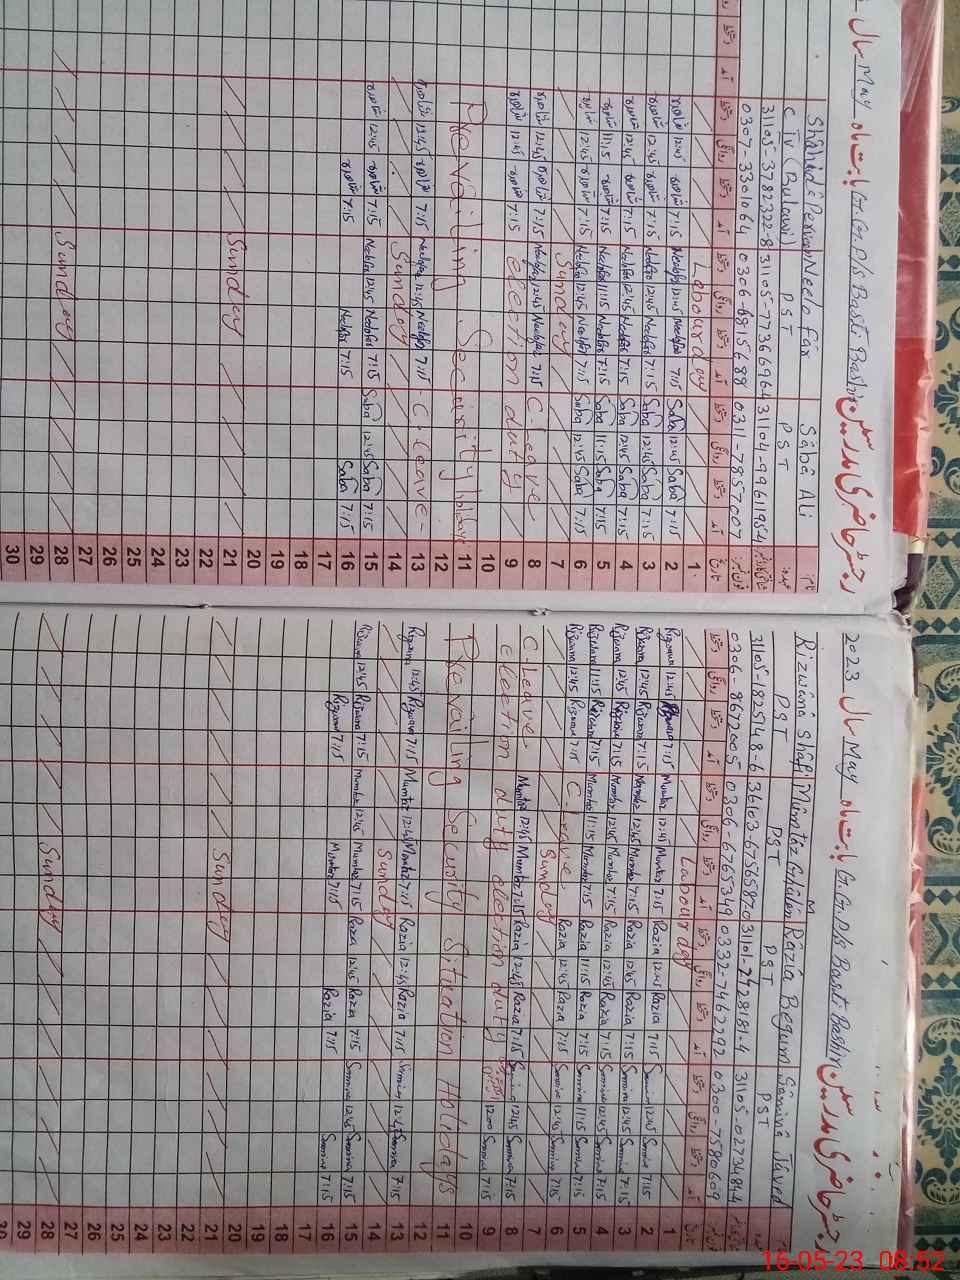 سال May بابت ماہ G.G.P/S Basti Bashir رجسٹر حاضری مدرسین
Shahida Perveen Neelofar Saba Ali نام
C Tv (Bulawi) PST PST عہدہ
31105-3782322-8 31105-7736696-4 31104-9961195-4
0307-3301064 0306-6815688 0311-7857007
دستخط روانگی دستخط آمد دستخط روانگی دستخط آمد دستخط روانگی دستخط آمد تاریخ
Labour day 1
شاہدہ 12:45 شاہدہ 7:15 Neelofar 12:45 Neelofar 7:15 Saba 12:45 Saba 7:15 2
شاہدہ 12:45 شاہدہ 7:15 Neelofar 12:45 Neelofar 7:15 Saba 12:45 Saba 7:15 3
شاہدہ 12:45 شاہدہ 7:15 Neelofar 12:45 Neelofar 7:15 Saba 12:45 Saba 7:15 4
شاہدہ 11:15 شاہدہ 7:15 Neelofar 11:15 Neelofar 7:15 Saba 11:15 Saba 7:15 5
شاہدہ 12:45 شاہدہ 7:15 Neelofar 12:45 Neelofar 7:15 Saba 12:45 Saba 7:15 6
Sunday 7
شاہدہ 12:45 شاہدہ 7:15 Neelofar 12:45 Neelofar 7:15 C. Leave 8
شاہدہ 12:45 شاہدہ 7:15 election duty 9
10
Prevailing Security holidays 11
12
شاہدہ 12:45 شاہدہ 7:15 Neelofar 12:45 Neelofar 7:15 - C. Leave - 13
Sunday 14
شاہدہ 12:45 شاہدہ 7:15 Neelofar 12:45 Neelofar 7:15 Saba 12:45 Saba 7:15 15
شاہدہ 7:15 Neelofar 7:15 Saba 7:15 16
17
18
19
20
Sunday 21
22
23
24
25
26
27
Sunday 28
29
30
2023 سال May بابت ماہ G.G.P/S Basti Bashir رجسٹر حاضری مدرسین
Rizwana Shafi Mumtaz Ghulam M Razia Begum Samina Javed
PST PST PST PST
31105-1825148-6 36103-6756587-0 31101-7728181-4 31105-0273484-4
0306-8672005 0306-6765349 0332-7462292 0300-7580609
دستخط روانگی دستخط آمد دستخط روانگی دستخط آمد دستخط روانگی دستخط آمد دستخط روانگی دستخط آمد تاریخ
Labour day 1
Rizwana 12:45 Rizwana 7:15 Mumtaz 12:45 Mumtaz 7:15 Razia 12:45 Razia 7:15 Samina 12:45 Samina 7:15 2
Rizwana 12:45 Rizwana 7:15 Mumtaz 12:45 Mumtaz 7:15 Razia 12:45 Razia 7:15 Samina 12:45 Samina 7:15 3
Rizwana 12:45 Rizwana 7:15 Mumtaz 12:45 Mumtaz 7:15 Razia 12:45 Razia 7:15 Samina 12:45 Samina 7:15 4
Rizwana 11:15 Rizwana 7:15 Mumtaz 11:15 Mumtaz 7:15 Razia 11:15 Razia 7:15 Samina 11:15 Samina 7:15 5
Rizwana 12:45 Rizwana 7:15 C. Leave Razia 12:45 Razia 7:15 Samina 12:45 Samina 7:15 6
Sunday 7
C-Leave Mumtaz 12:45 Mumtaz 7:15 Razia 12:45 Razia 7:15 Samina 12:45 Samina 7:15 8
election duty election duty 12:00 Samina 7:15 9
10
Prevailing Security Situation Holidays 11
12
Rizwana 12:45 Rizwana 7:15 Mumtaz 12:45 Mumtaz 7:15 Razia 12:45 Razia 7:15 Samina 12:45 Samina 7:15 13
Sunday 14
Rizwana 12:45 Rizwana 7:15 Mumtaz 12:45 Mumtaz 7:15 Razia 12:45 Razia 7:15 Samina 12:45 Samina 7:15 15
Rizwana 7:15 Mumtaz 7:15 Razia 7:15 Samina 7:15 16
17
18
19
20
Sunday 21
22
23
24
25
26
27
Sunday 28
29
30
16-05-23 08:52